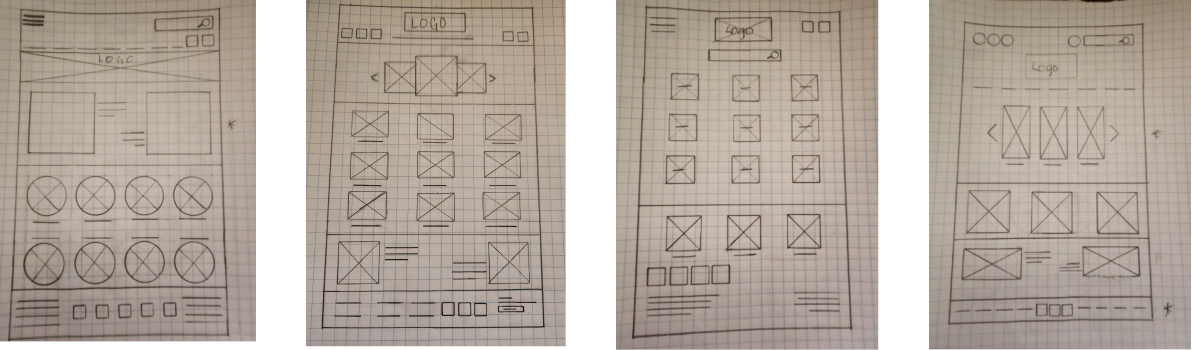 LOGO
LOGO
Logo
Logo